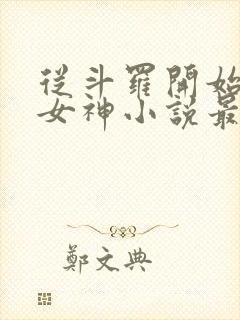 從斗羅開始
女神小說最
鄭文典